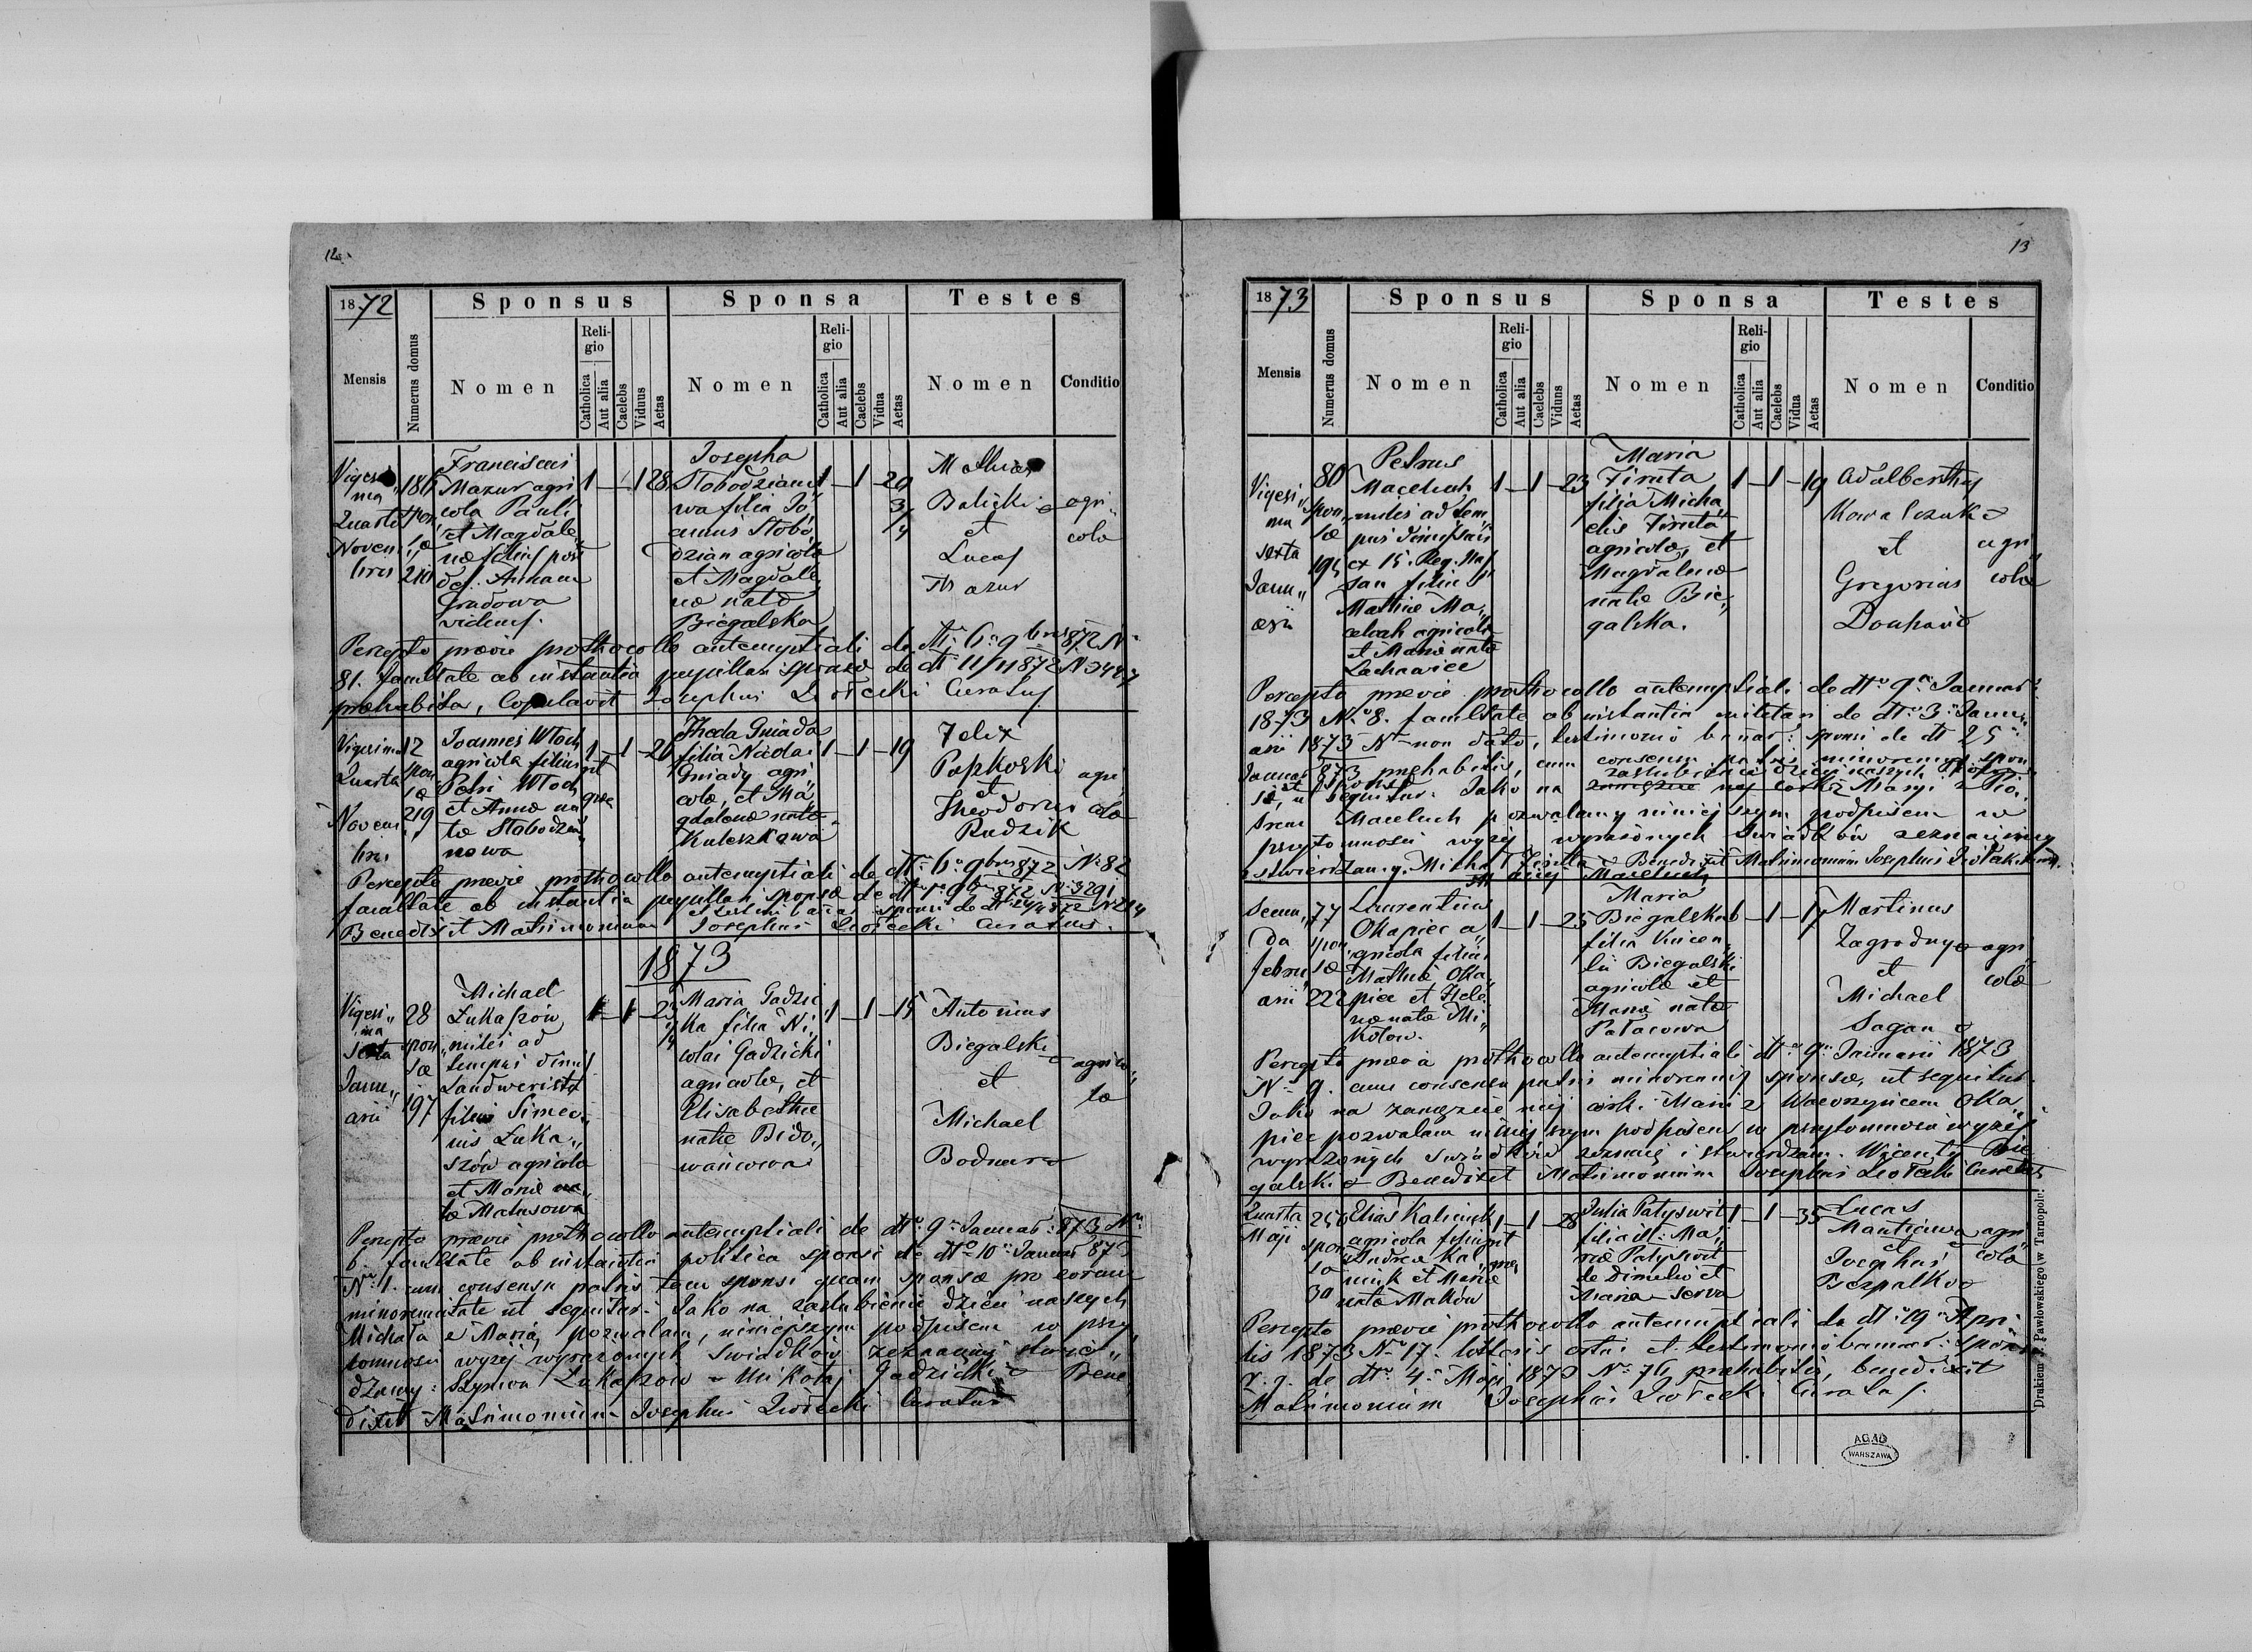 12.
1872
Sponsus
Sponsa
Testes
Mensis
Numerus domus
Nomen
Religio
Catholica
Aut alia
Caelebs
Viduus
Aetas
Nomen
Religio
Catholica
Aut alia
Caelebs
Vidua
Aetas
Nomen
Conditio
Vigesi
ma
Quarta
Novem
bris
186
spon
sæ
210
Franciscus
Mazur agri
cola Pauli
et Magdale
næ filius post
def. Annam
Gradowa
viduus.
1 – 1 28
Josepha
Słobodziano
wa filia Jo
annis Słobo
dzian agricola
et Magdale
næ nata
Biegalska
1 – 1 – 20
3/4
Mathias
Balicki
et
Lucas
Mazur
agri
cola
Peracto prævie prothocollo antenuptiali de dtt. 6. 9bris 872 N
81. facultate ab instantia pupillari sponsæ de dt 11/11 872 N 3447
præhabita, Copulavit Josephus Curatus
Vigesima
Quarta
Novem
bris
12
spon
sæ
219
Joannes Włoch
agricola filius
Petri Włoch
et Annæ na
tæ Słobodzia
nowa
1 – 1 – 26
Theda Gniada
filia Nicolai
Gniady agri
colæ, et Ma
gdalenæ natæ
Kuleszkowa
1 – 1 – 19
Felix
Papkoski
et
Theodorus
Rudzik
agri
colæ
Peracto prævie prothocollo antenuptiali de dtt. 6. 9bris 872 N 82
facultate ab instantia pupillari sponsæ de 9bris 872 N 3291
Benedixit Matrimonium Josephus Curatus.
1873
Vigesi
ma
Sexta
Janu
arii
28
spon
sæ
197
Michael
Łukaszow
miles ad
tempus dimis
Landwerista
filius Simeo
nis Łuka
szów agricola
et Mariæ na
tæ Matusowa
1 – 1 – 23
Maria Gadzic
ka filia Ni
colai Gadzicki
agricolæ, et
Elisabethæ
natæ Bido
waniowa
1 – 1 – 15
Antonius
Biegalski
et
Michael
Bodnar
agrico
læ
Peracto prævie prothocollo antenuptiali de dtto 9 Januar: 873 Nr
6. facultate ab instantia politica sponsi de dtto 10 Januar 873
Nr 1. cum consensu patris tam sponsi quam sponsæ pro eorum
minorennitate ut sequitur: Jako na zaślubienie dzieci naszych
Michała z Marią pozwalam, niniejszym podpisem w przy
tomności wyżej wyrażonych świadków zeznajemy stwier
dzamy: Szymon Łukaszow Mikołaj Gadzicki Bene
dixit Matrimonium Josephus Curatus
13
1873
Sponsus
Sponsa
Testes
Mensis
Numerus domus
Nomen
Religio
Catholica
Aut alia
Caelebs
Viduns
Aetas
Nomen
Religio
Catholica
Aut alia
Caelebs
Vidua
Aetas
Nomen
Conditio
Vigesi
ma
sexta
Janu
arii
80
spon
sæ
195
Petrus
Maceluch
miles ad tem
pus dimissus
ex 15. Reg. Nas
sau filius
Martini Ma
celuch agricola
et Mariæ nata
Lachowice
1 – 1 – 23
Maria
Firuta
filia Micha
elis Firuta
agricolæ, et
Magdalenæ
natæ Bie
galska.
1 – 1 – 19
Adalberthus
Kowalczuk
et
Gregorius
Douhań
agri
colæ
Peracto prævie prothocollo antenuptiali de dtto 9 Januar
1873 No 8. facultate ab instantia militari de dtto 3 Janu
arii 1873 N non dato, testimonio bannor: sponsi de dt 25
Januar 873 præhabitis, cum consensu patris minorennis spon
sæ, ut sequitur: Jako na zaślubienie dzieci naszych
zamęzcie mej córki Maryi z Pio
trem Maceluch pozwalamy niniejszym podpisem w
przytomności wyżej wyrażonych świadków zeznajemy
stwierdzamy. Michał Firuta Benedixit Matrimonium Josephus
Maceluch
Secun
da
Febru
arii
77
spon
sæ
222
Laurentius
Okapiec a
gricola filius
Mathiæ Oka
piec et Hele
næ natæ Mi
kołow.
1 – 1 – 25
Maria
Biegalska
filia Vincen
tii Biegalski
agricolæ et
Mariæ natæ
Pałacowa
1 – 1 – 17
Martinus
Zagrodny
et
Michael
Sagan
agri
colæ
Peracto prævia prothocollo antenuptiali dtto 9 Januarii 1873
N 9. cum consensu patris minorennis sponsæ, ut sequitur.
Jako na zamęzcie mej córki Marii z Wawrzyńcem Oka
piec pozwalam niniejszym podpisem w przytomności wyżej
wyrażonych świadków zeznaję i stwierdzam. Wicenty Bie
galski Benedixit Matrimonium Josephus Curatus
Quarta
Maji
256
spon
sæ
30
Elias Kaliniuk
agricola filius
Andreæ Kal
iniuk et Mariæ
natæ Maków
1 – 1 – 28
Julia Patyswit
filia ill: Ma
riæ Patyswit
de Dimelio et
Maria serva
1 – 1 – 35
Lucas
Mantiuwa
et
Josephus
Pszpalko
agri
colæ
Peracto prævie prothocollo antenuptiali de dt 19 Apri
lis 1873 N 17. litteris ortus et testimonio bannor: sponsi
r. g. de dtto 4. Maji 1873 No 76 præhabitis, benedixit
Matrimonium Josephus Curatus.
Drukiem J. Pawłowskiego w Tarnopolu.
AGAD
WARSZAWA